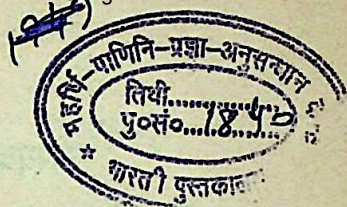 महर्षि-पाणिनि-प्रज्ञा-अनुसन्धान
तिथी..................
पु०सं०...1840
* भारती पुस्तकालय